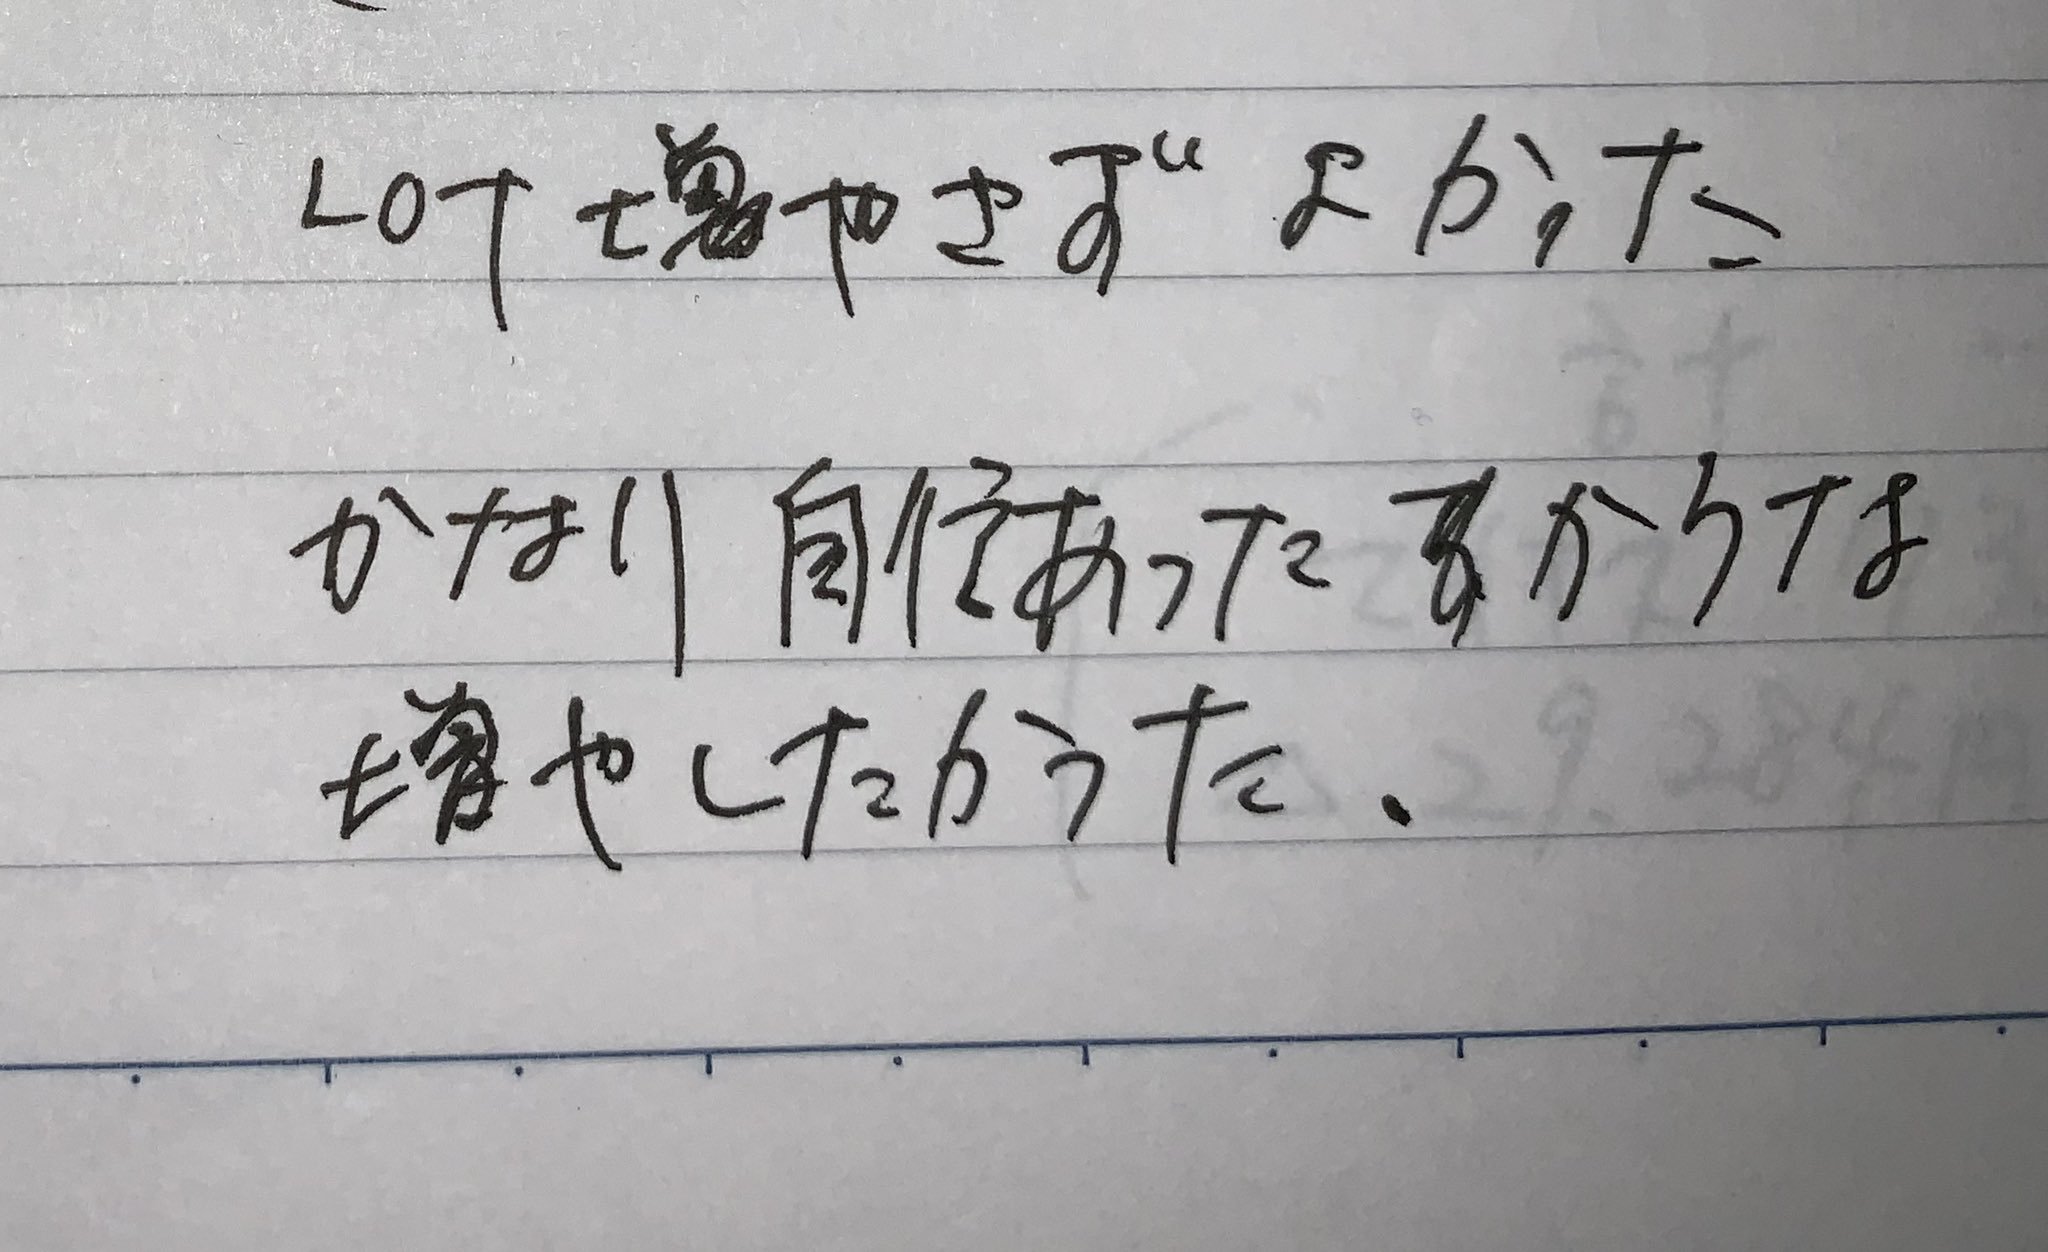 LOT増やさずよかった
かなり自信あったすからな
増やしたかった.